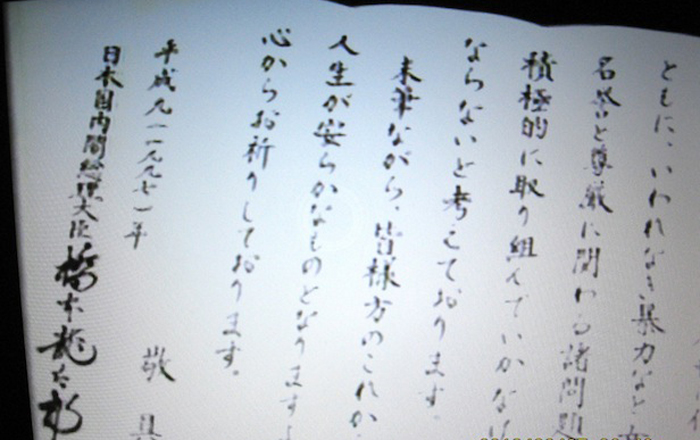 ともに、いわれなき暴力など
名誉と尊厳に関わる諸問題
積極的に取り組んでいかなけ
ならないと考えております。
末筆ながら、皆様方のこれか
人生が安らかなものとなりますよ
心からお祈りしております。
敬具
平成九(一九九七)年
日本国内閣総理大臣 橋本龍太郎